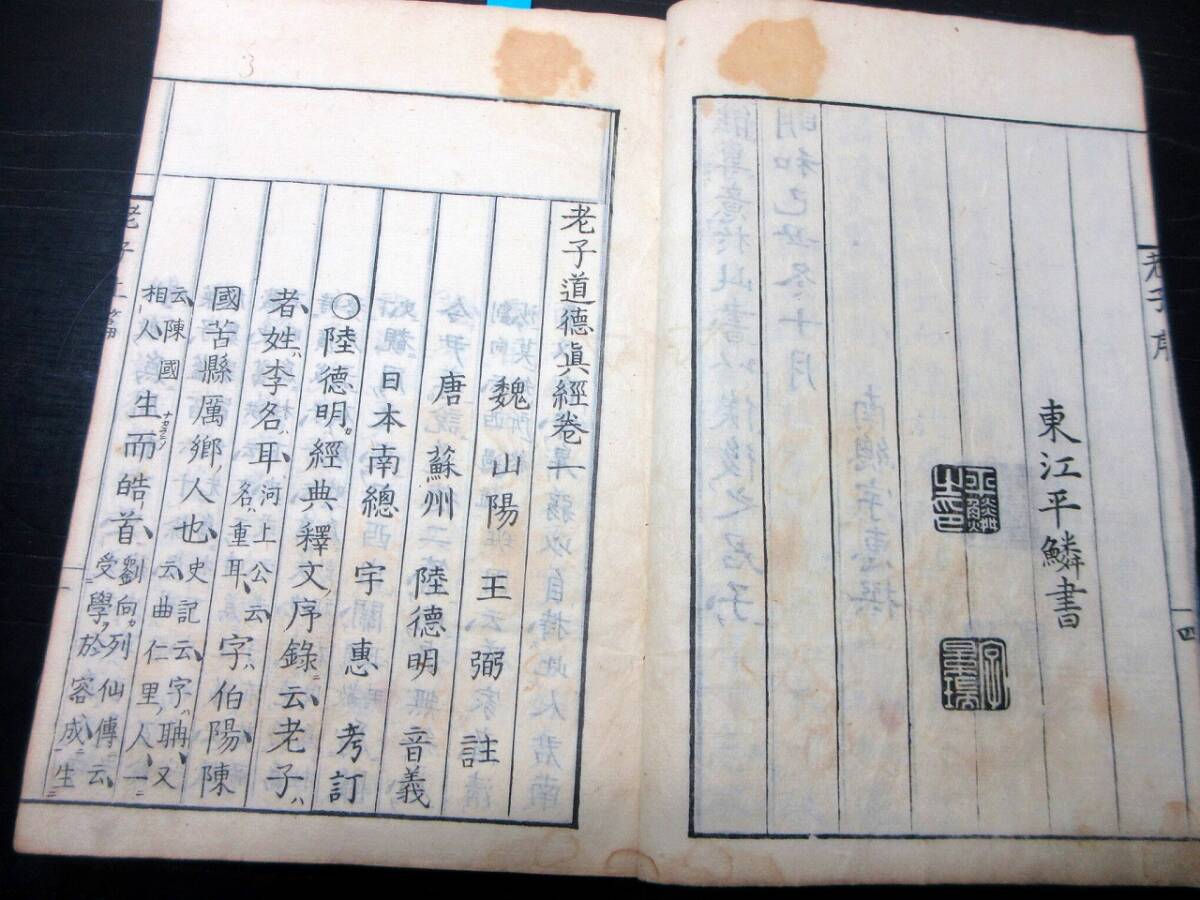 老子序
四
東江平鱗書
平鱗之印
老子道德眞經卷一
魏 山陽 王弼 註
唐 蘇州 陸德明 音義
日本 南總 宇惠 考訂
〇陸德明經典釋文序錄云老子
者姓李名耳河上公云名重耳字伯陽陳
國苦縣厲鄉人也史記云字聃又云曲仁里人一
云陳國相人生而皓首劉向列仙傳云受學於容成生
老子